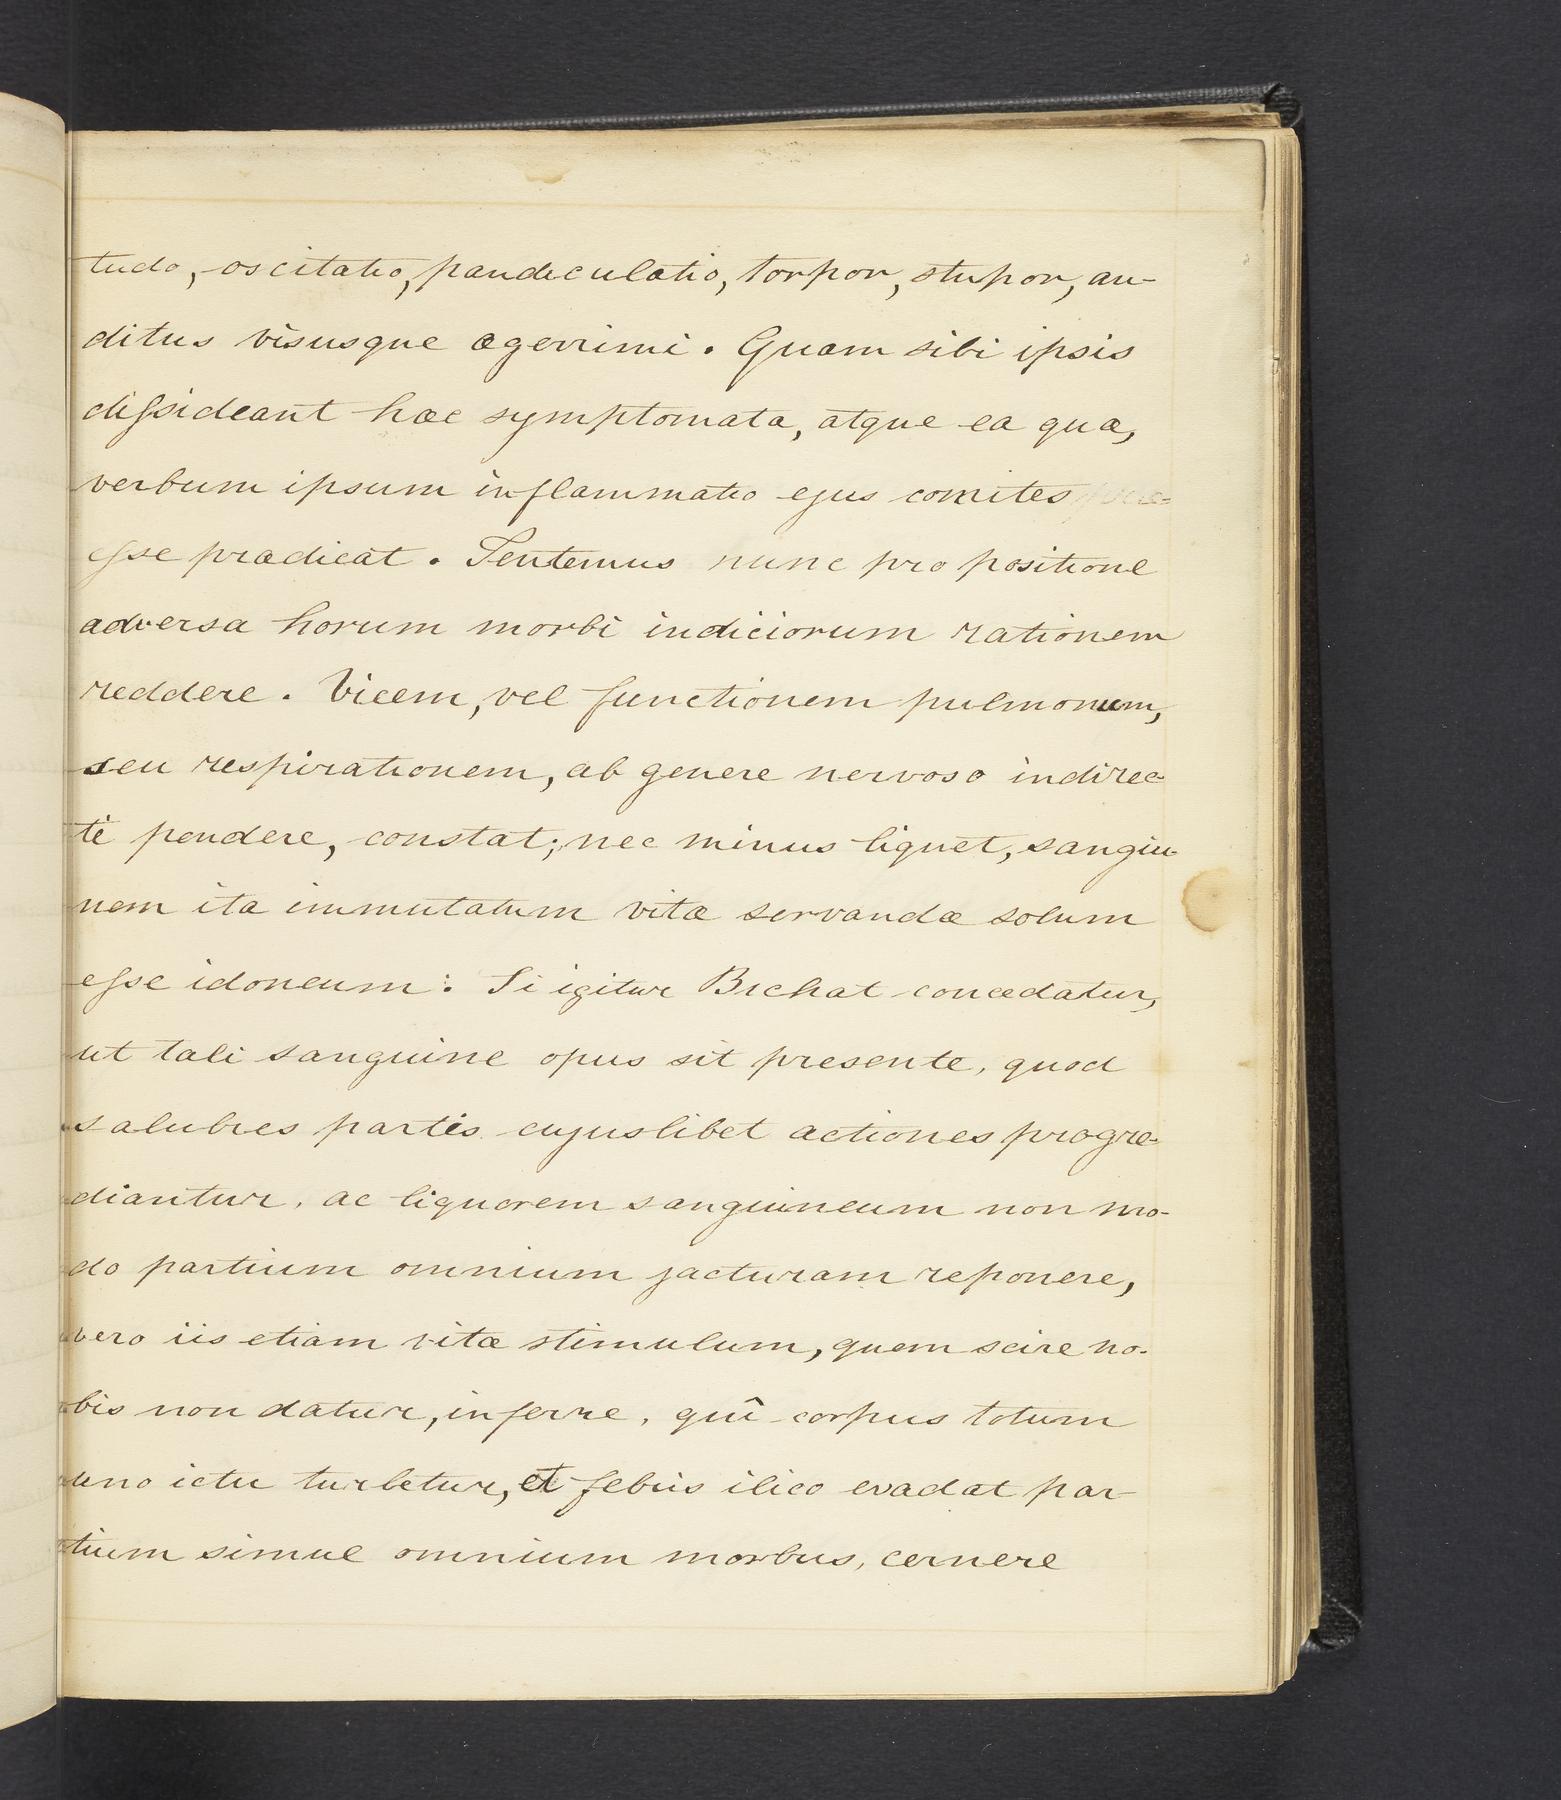 tudo, oscitatio, pandiculatio, torpor, stupor, au-
ditus visusque ægerrimi. Quam sibi ipsis
dissideant hæc symptomata, atque ea quæ,
verbum ipsum inflammatio ejus comites
esse prædicat. Tentemus nunc pro positione
adversa horum morbi indiciorum rationem
reddere. Vicem, vel functionem pulmonum,
seu respirationem, ab genere nervoso indirec-
tè pendere, constat; nec minus liquet, sangui-
nem ita immutatum vitæ servandæ solum
esse idoneum: Si igitur Bichat concedatur,
ut tali sanguine opus sit presente, quod
salubres partis cujuslibet actiones progre-
diantur, ac liquorem sanguineum non mo-
do partium omnium jacturam reponere,
vero iis etiam vitæ stimulum, quem scire no-
bis non datur, inferre, quî corpus totum
uno ictu turbetur, et febris ilico evadat par-
tium simul omnium morbus, cernere